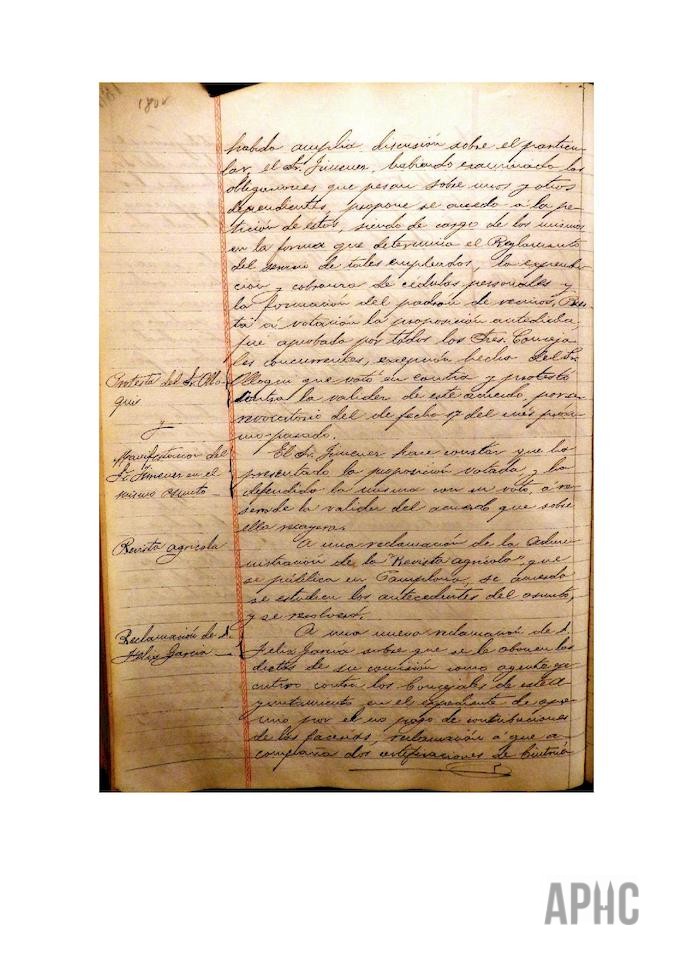 1802
habido amplia discusión sobre el particu-
lar, el Sr. Jimenez, habiendo examinado las
obligaciones que pesan sobre unos y otros
dependientes, propone se acceda á la pe-
tición de estos, siendo de cargo de los mismos
en la forma que determina el Reglamento
del servicio de tales empleados, la expendi-
cion y cobranza de cédulas personales y
la formación del padron de vecinos. Pues-
ta á votación la proposición antedicha,
fue aprobada por todos los Sres. Conceja-
les concurrentes, excepción hecha del Sr.
Protesta del Sr. Ollo-
quis
y
Olloquis que votó en contra y protestó
contra la validez de este acuerdo, por ser
revocatorio del de fecha 17 del mes próxi-
mo pasado.
Manifestacion del
Sr. Jimenez en el
mismo asunto
El Sr. Jimenez hace constar que ha
presentado la proposición votada, y ha
defendido la misma con su voto, á re-
serva de la validez del acuerdo que sobre
ella recayera.
Revista agrícola
A una reclamación de la Admi-
nistración de la "Revista agrícola" que
se pública en Pamplona, se acuerda
se estudien los antecedentes del asunto,
y se resolverá.
Reclamación de D.
Félix Garcia
A una nueva reclamación de D.
Felix Garcia sobre que se le abonen las
dietas de su comisión como agente eje-
cutivo contra los Concejales de este A
yuntamiento en el expediente de apre-
mio por el no pago de contribuciones
de las facerias, reclamación á que a-
compaña dos certificaciones de